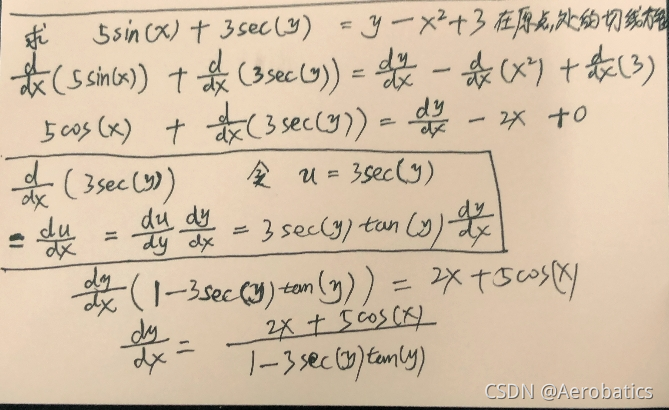 求 5sin(x) + 3sec(y) = y - x²+3 在原点处的切线方程
d/dx(5sin(x)) + d/dx(3sec(y)) = dy/dx - d/dx(x²) + d/dx(3)
5cos(x) + d/dx(3sec(y)) = dy/dx - 2x +0
d/dx(3sec(y)) 令 u = 3sec(y)
= du/dx = du/dy dy/dx = 3sec(y)tan(y) dy/dx
dy/dx(1-3sec(y)tan(y)) = 2x+5cos(x)
dy/dx = 2x + 5cos(x) / 1-3sec(y)tan(y)
CSDN @Aerobatics